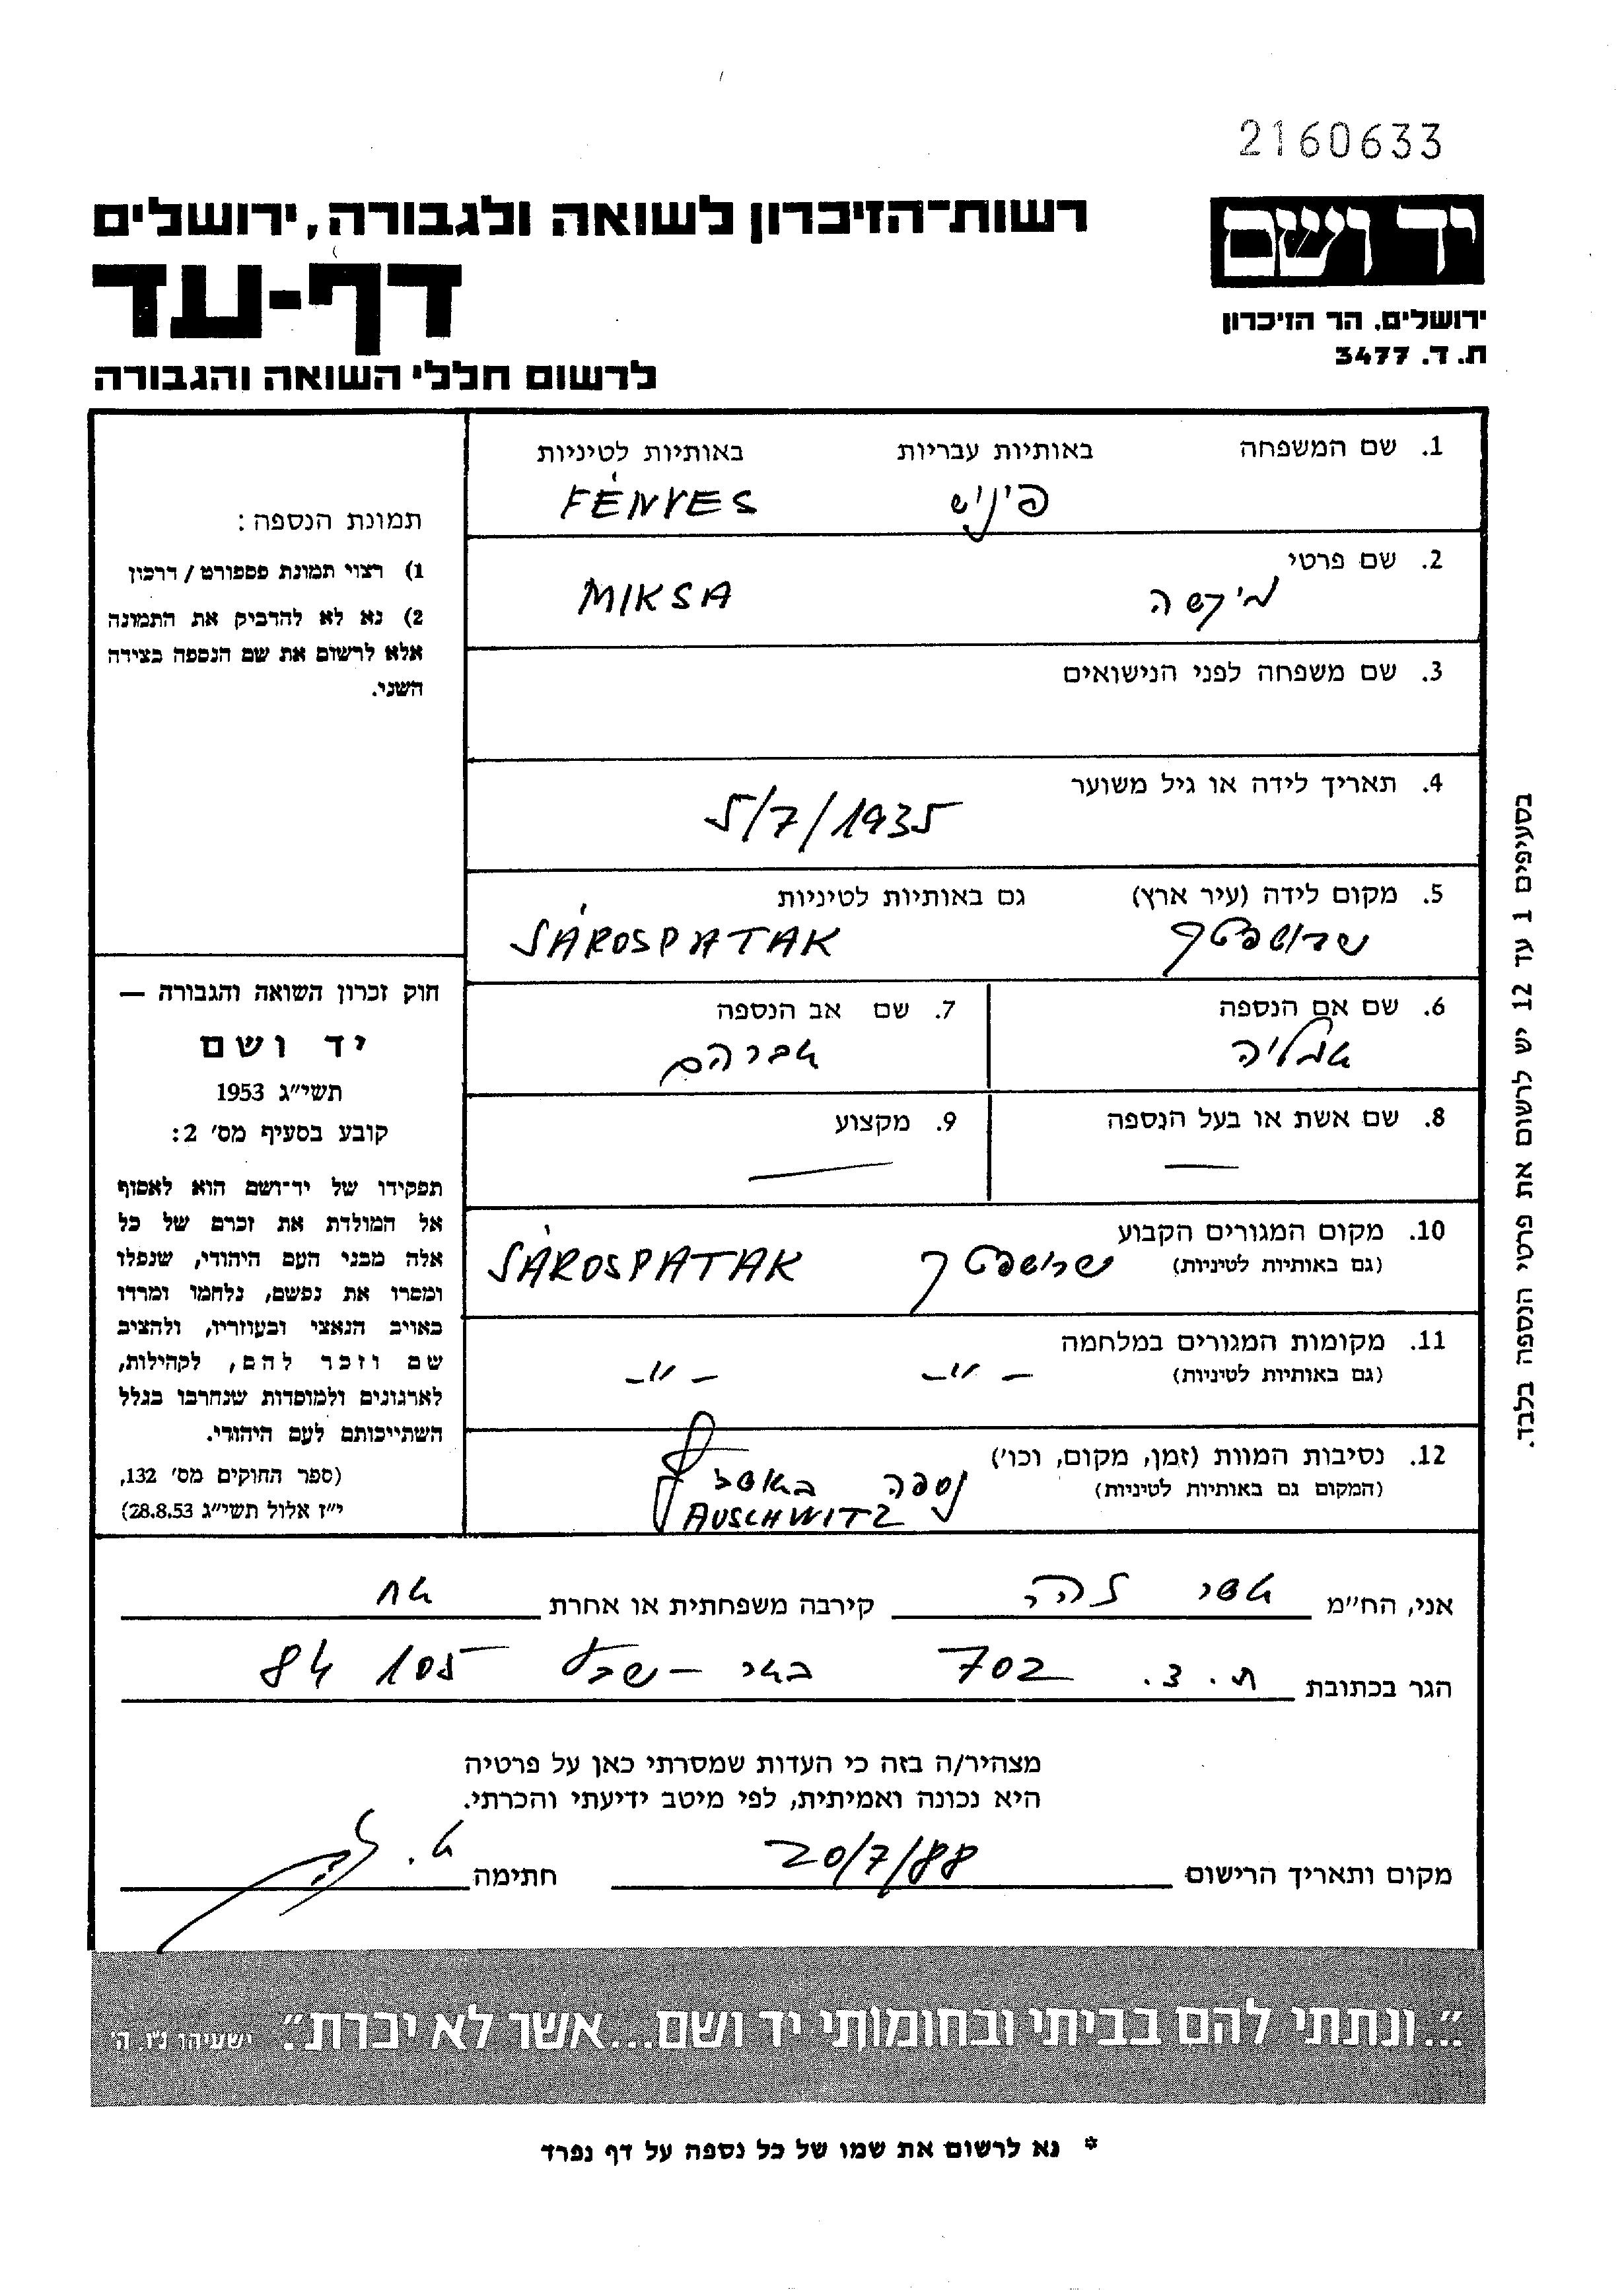 2160633
יד ושם
ירושלים, הר הזיכרון
ת. ד. 3477
רשות־הזיכרון לשואה ולגבורה, ירושלים
דף-עד
לרשום חללי השואה והגבורה
1. שם המשפחה באותיות עבריות באותיות לטיניות
פיניש FÉNYES
2. שם פרטי
מיקשה MIKSA
3. שם משפחה לפני הנישואים
4. תאריך לידה או גיל משוער
5/7/1935
5. מקום לידה (עיר ארץ) גם באותיות לטיניות
שרושפטק SÁROSPATAK
6. שם אם הנספה 7. שם אב הנספה
אמליה אברהם
8. שם אשת או בעל הנספה 9. מקצוע
— —
10. מקום המגורים הקבוע
(גם באותיות לטיניות)
שרושפטק SÁROSPATAK
11. מקומות המגורים במלחמה
(גם באותיות לטיניות)
- " - - " -
12. נסיבות המוות (זמן, מקום, וכו')
(המקום גם באותיות לטיניות)
נספה
AUSCHWITZ
תמונת הנספה:
1) רצוי תמונת פספורט / דרכון
2) נא לא להדביק את התמונה
אלא לרשום את שם הנספה בצידה
השני.
חוק זכרון השואה והגבורה —
יד ושם
תשי"ג 1953
קובע בסעיף מס' 2:
תפקידו של יד־ושם הוא לאסוף
אל המולדת את זכרם של כל
אלה מבני העם היהודי, שנפלו
ומסרו את נפשם, נלחמו ומרדו
באויב הנאצי ובעוזריו, ולהציב
שם וזכר להם, לקהילות,
לארגונים ולמוסדות שנחרבו בגלל
השתייכותם לעם היהודי.
(ספר החוקים מס' 132,
י"ז אלול תשי"ג 28.8.53)
בסעיפים 1 עד 12 יש לרשום את פרטי הנספה בלבד.
אני, הח"מ קירבה משפחתית או אחרת אח
הגר בכתובת ת.צ. 702 באר-שבע 84 105
מצהיר/ה בזה כי העדות שמסרתי כאן על פרטיה
היא נכונה ואמיתית, לפי מיטב ידיעתי והכרתי.
מקום ותאריך הרישום 20/7/88 חתימה
"...ונתתי להם בביתי ובחומותי יד ושם...אשר לא יכרת". ישעיהו נ"ו, ה'
* נא לרשום את שמו של כל נספה על דף נפרד